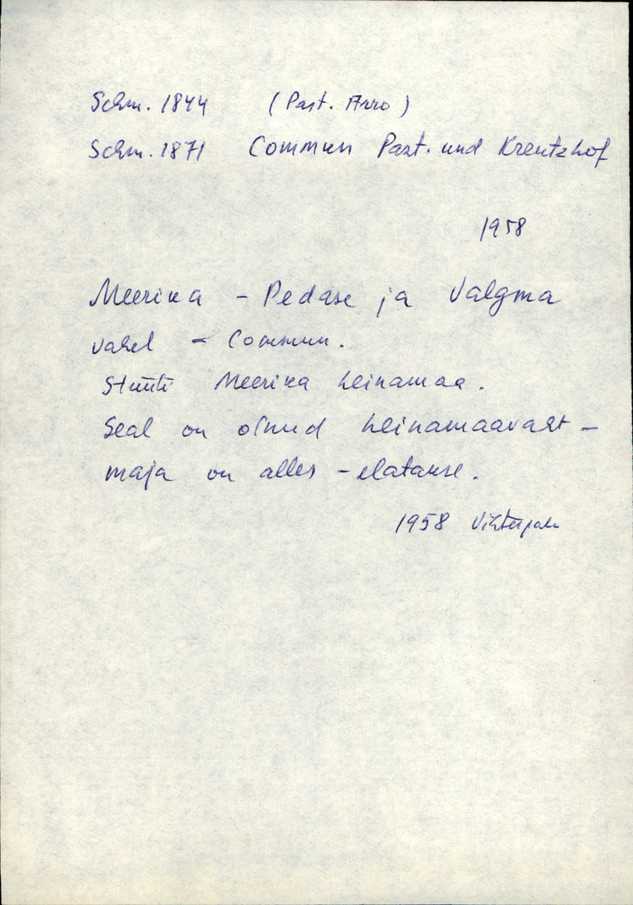 Schm. 1844 (Past. Arro)
Schm. 1871 Commun Past. und Kreutzhof
1958
Meerika - Pedase ja Valgma
vahel - Commun.
Meerika heinamaa.
Seal on olnud heinamaavaht -
maja on alles - elatakse.
1958 Vihterpalu